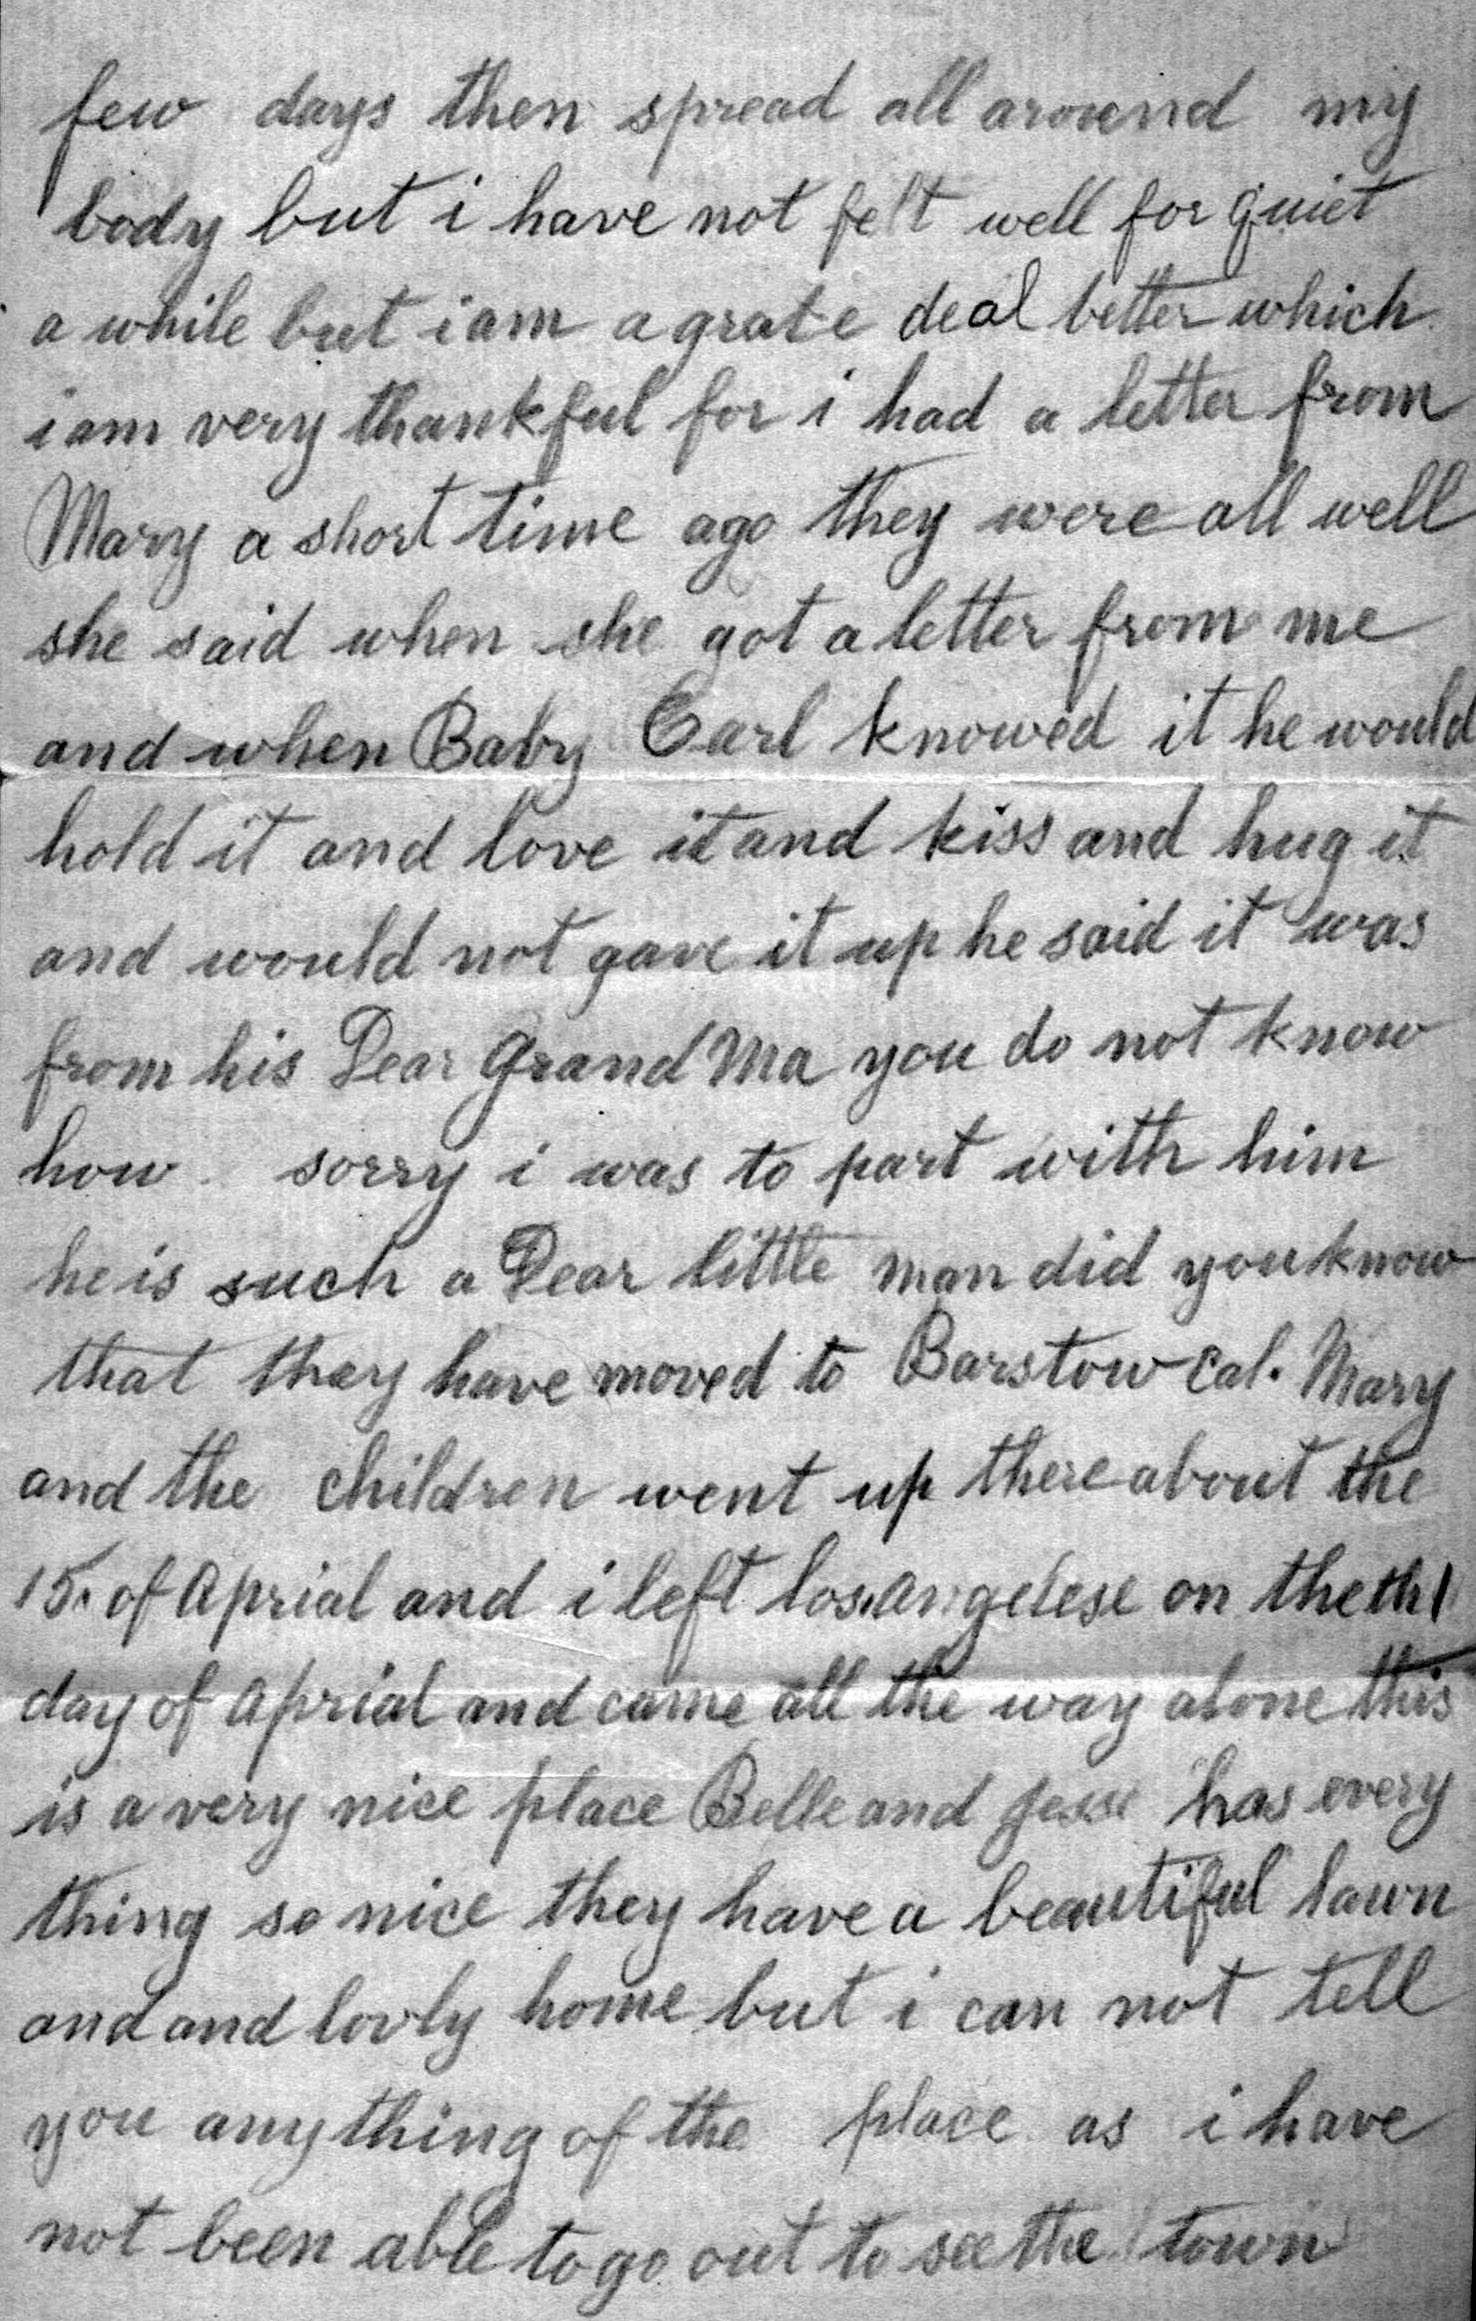 few days then spread all around my
body but i have not felt well for quiet
a while but i am a grate deal better which
i am very thankful for i had a letter from
Mary a short time ago they were all well
she said when she got a letter from me
and when Baby Carl knowed it he would
hold it and love it and kiss and hug it
and would not gave it up he said it was
from his Dear Grand Ma you do not know
how sorry i was to part with him
he is such a Dear little man did you know
that they have moved to Barstow Cal. Mary
and the children went up there about the
15. of Aprial and i left los Angelese on the
day of Aprial and came all the way alone this
is a very nice place Belle and Jesse has every
thing so nice they have a beautiful lawn
and and lovly home but i can not tell
you anything of the place as i have
not been able to go out to see the town